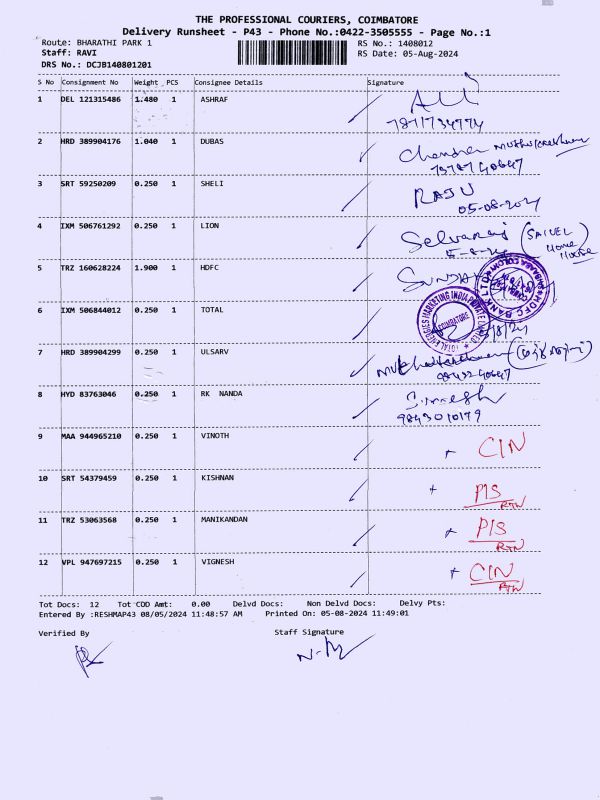 THE PROFESSIONAL COURIERS, COIMBATORE
Delivery Runsheet - P43 - Phone No.:0422-3505555 - Page No.:1
Route: BHARATHI PARK 1
RS No.: 1408012
Staff: RAVI
RS Date: 05-Aug-2024
DRS No.: DCJB140801201
S No Consignment No Weight PCS Consignee Details Signature
1 DEL 121315486 1.480 1 ASHRAF ALI
2 HRD 389904176 1.040 1 DUBAS Chandra
3 SRT 59250209 0.250 1 SHELI RAJU
05-08-2024
4 IXM 506761292 0.250 1 LION Selvaraj
5 TRZ 160628224 1.900 1 HDFC
HDFC BANK LTD
6 IXM 506844012 0.250 1 TOTAL
TOTAL ENERGIES MARKETING INDIA PRIVATE LIMITED
COIMBATORE
7 HRD 389904299 0.250 1 ULSARV
8 HYD 83763046 0.250 1 RK NANDA
9843010179
9 MAA 944965210 0.250 1 VINOTH + CIN
10 SRT 54379459 0.250 1 KISHNAN + PIS
RTN
11 TRZ 53063568 0.250 1 MANIKANDAN + PIS
RTN
12 VPL 947697215 0.250 1 VIGNESH + CIN
RTN
Tot Docs: 12 Tot COD Amt: 0.00 Delvd Docs: Non Delvd Docs: Delvy Pts:
Entered By :RESHMAP43 08/05/2024 11:48:57 AM Printed On: 05-08-2024 11:49:01
Verified By Staff Signature